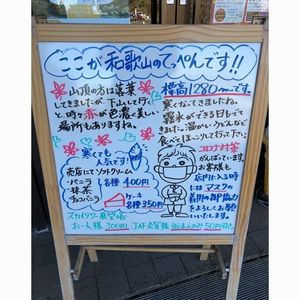 ここが和歌山のてっぺんです!!
山頂の方は落葉
してきましたが、下山して行く
と、時々赤が色濃く美しい
場所もありますね。
標高1280mです。
寒くなってきましたね。
霧氷ができる日もでて
きました。温かいうどんなど
食べてほっこりして行って下さい
寒くても
人気です!
売店にてソフトクリーム
・バニラ
・抹茶
・チョコバニラ
各種400円
ケーキ
各種350円
コロナ対策
がんばっています。
お客様も
店内に入る時
にはマスクの
着用の御協力
をよろしくお願い
いたします。
スカイタワー展望塔
お一人様 300円
JAF会員様
50円引き